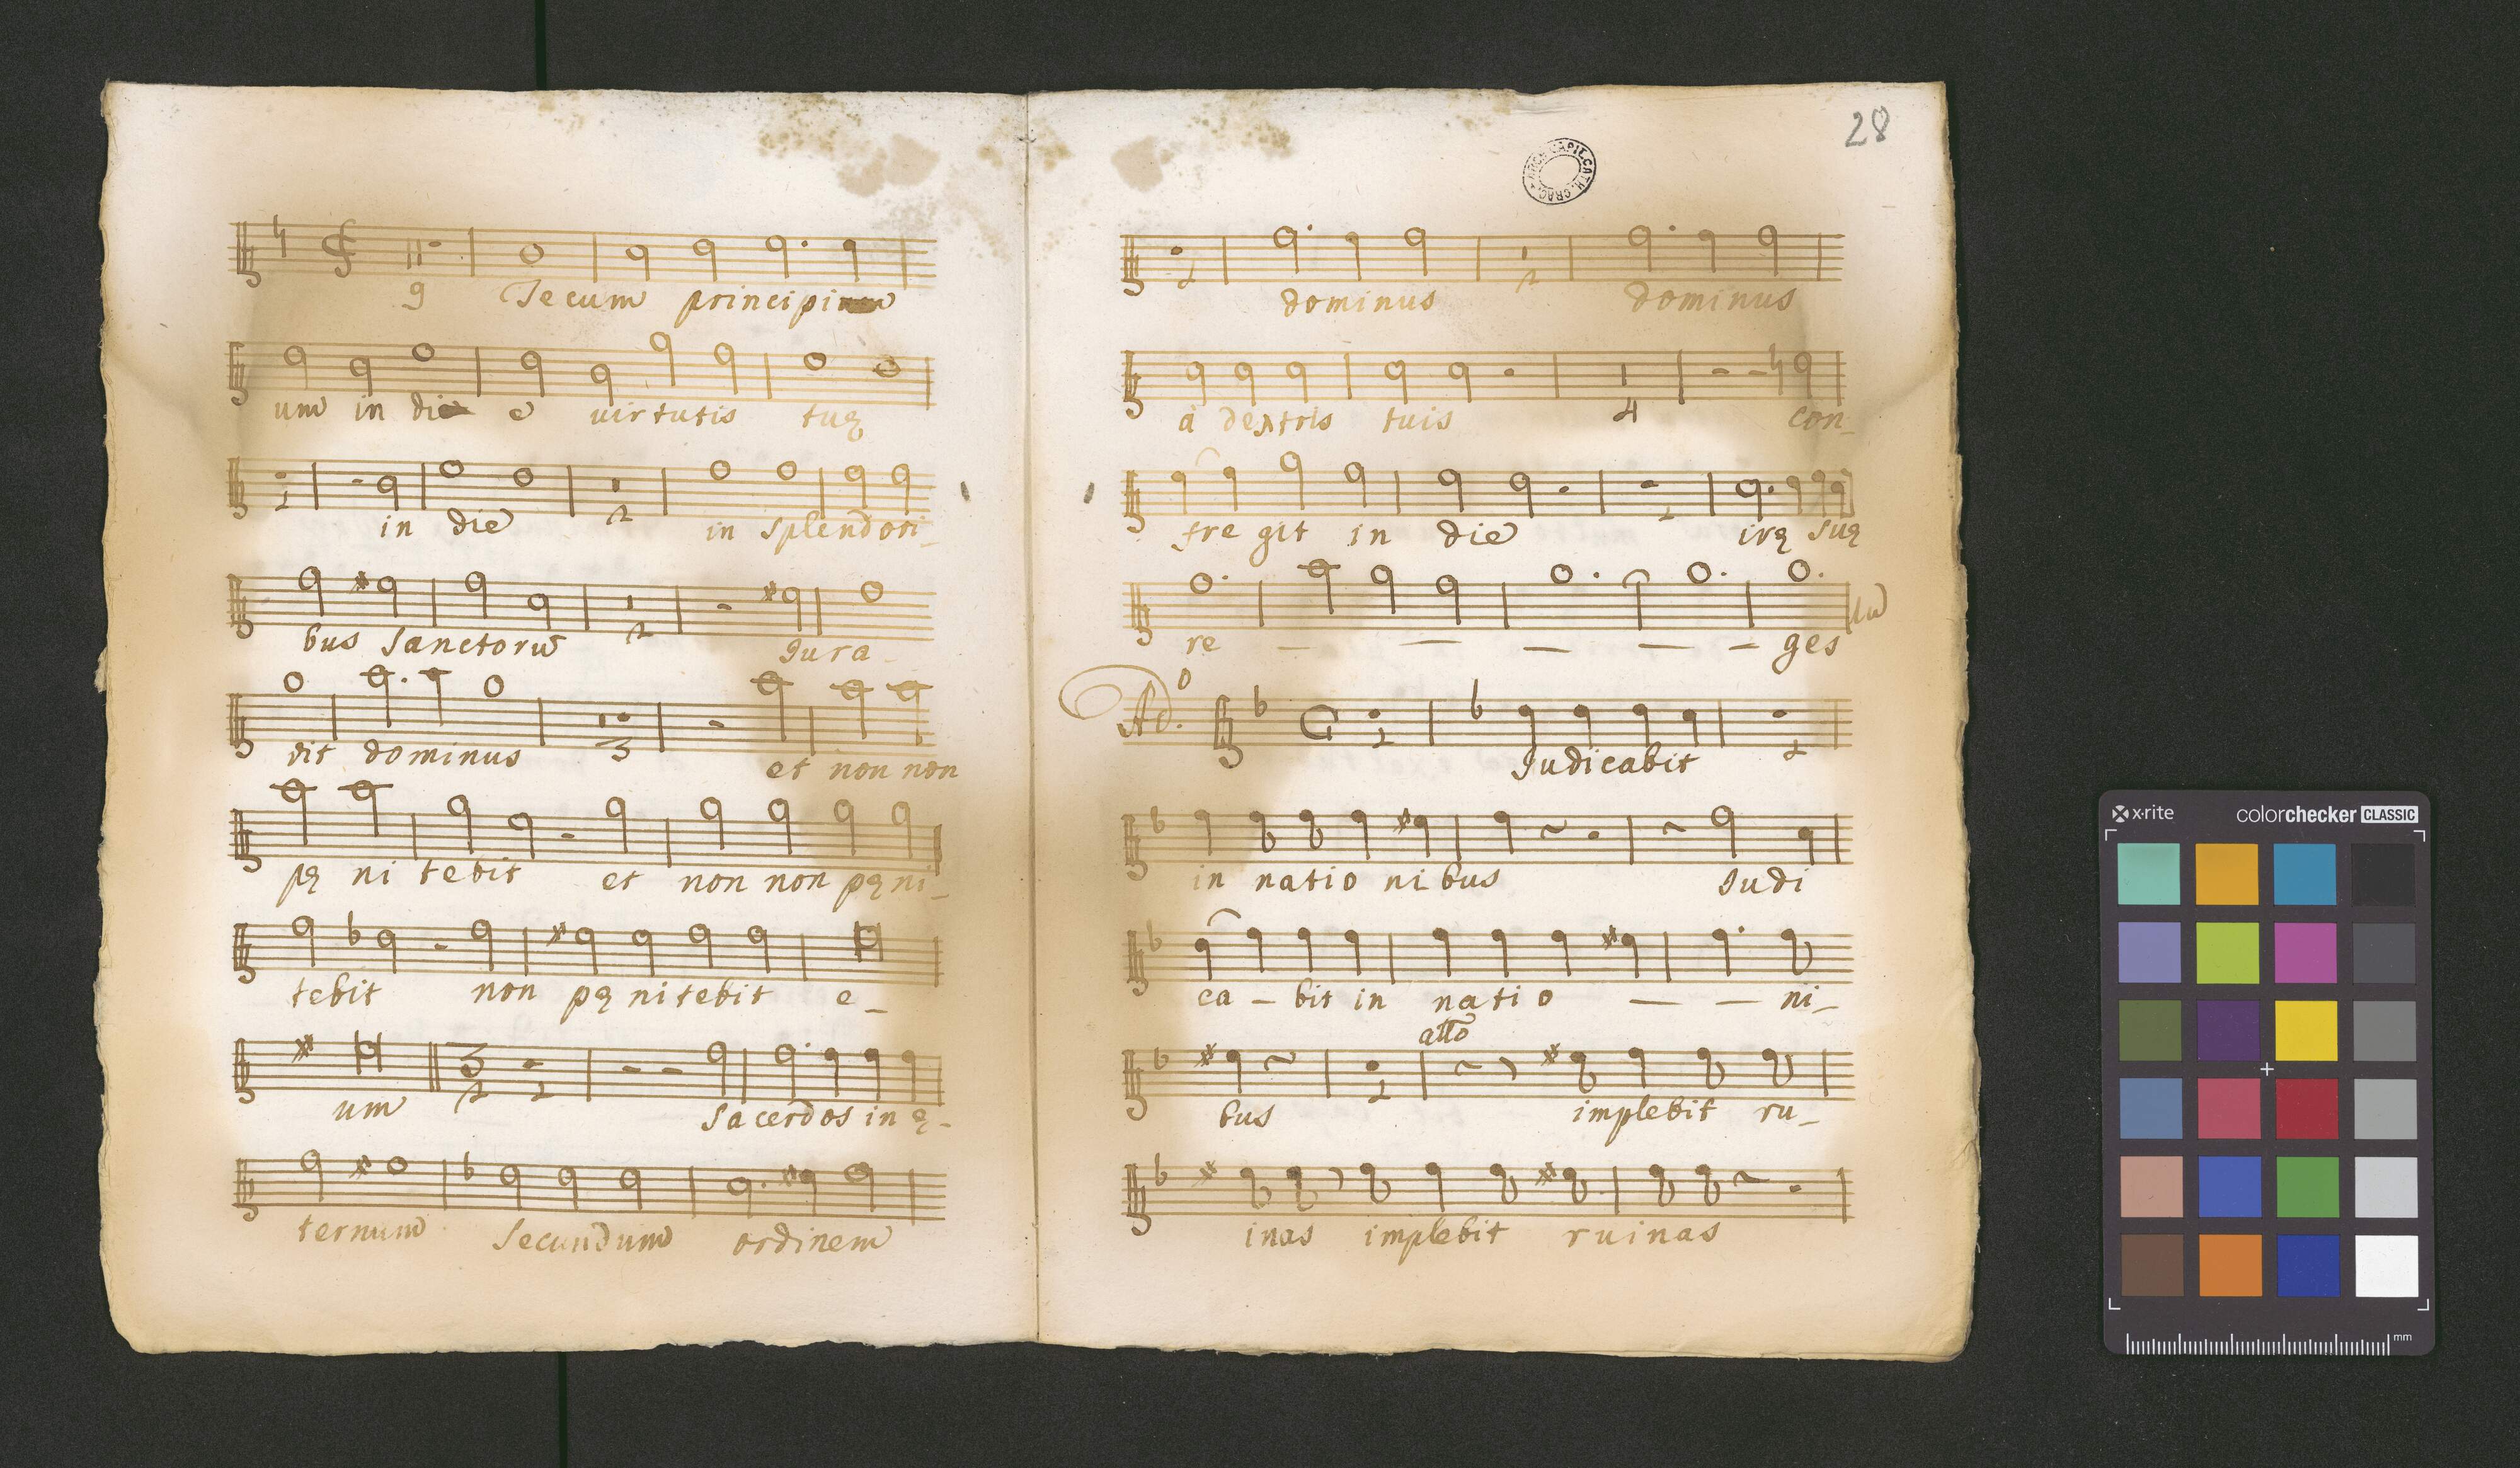 9 Tecum principi
um in die e virtutis tuę
in die 2 in splendori_
bus sanctorũ 2 Jura_
vit dominus 3 et non non
pę ni tebit et non non pęni_
tebit non pę nitebit e_
um 3 2 2 Sacerdos in ę_
ternum Secundum ordinem
28
ARCH. CAPIT. CATH. CRAC.
2 dominus 2 dominus
à dextris tuis 4 con_
fre git in die irę suę
re _ _ _ _ _ ges
Ad.o C 2 Judicabit 2
in natio ni bus Judi
ca _ bit in nati o _ _ ni_
allo
bus 2 implebit ru_
inas implebit ruinas
x-rite colorchecker CLASSIC
mm